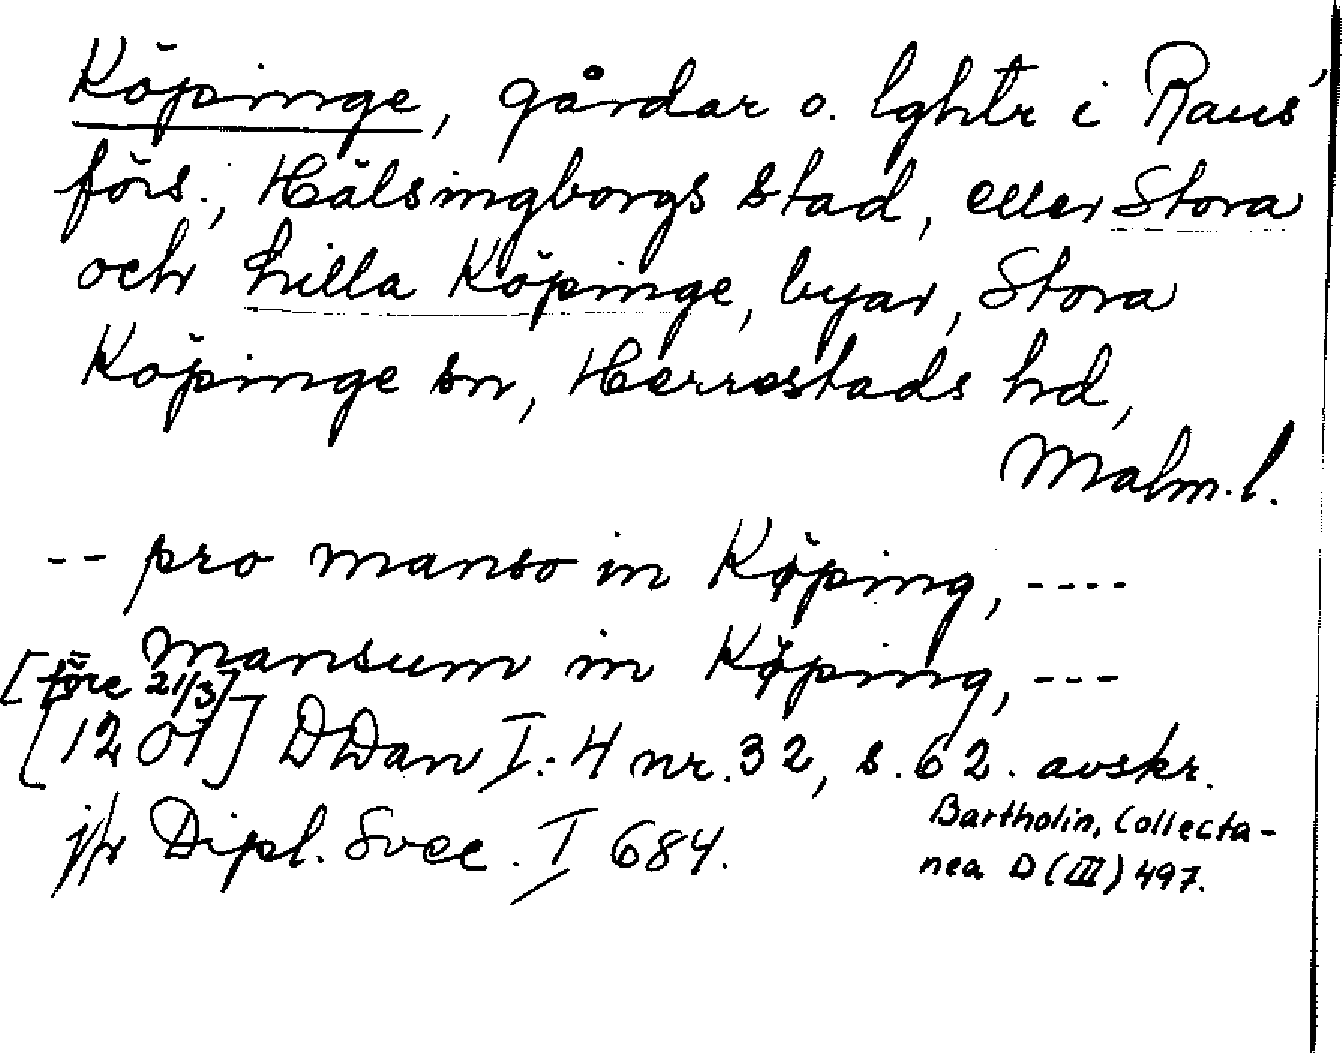 Köpinge, gårdar o. lghtr i Raus'
förs., Hälsingborgs stad, eller Stora
och Lilla Köpinge, byar, Stora
Köpinge sn, Herrestads hd,
Malm. l.
-- pro manso in Køping, ----
mansum in Køping, ---
[före 21/3]
[1201] DDan I:4 nr. 32, s. 62. avskr.
Bartholin, Collecta-
nea D (III) 497.
jfr Dipl. Svec. I 684.